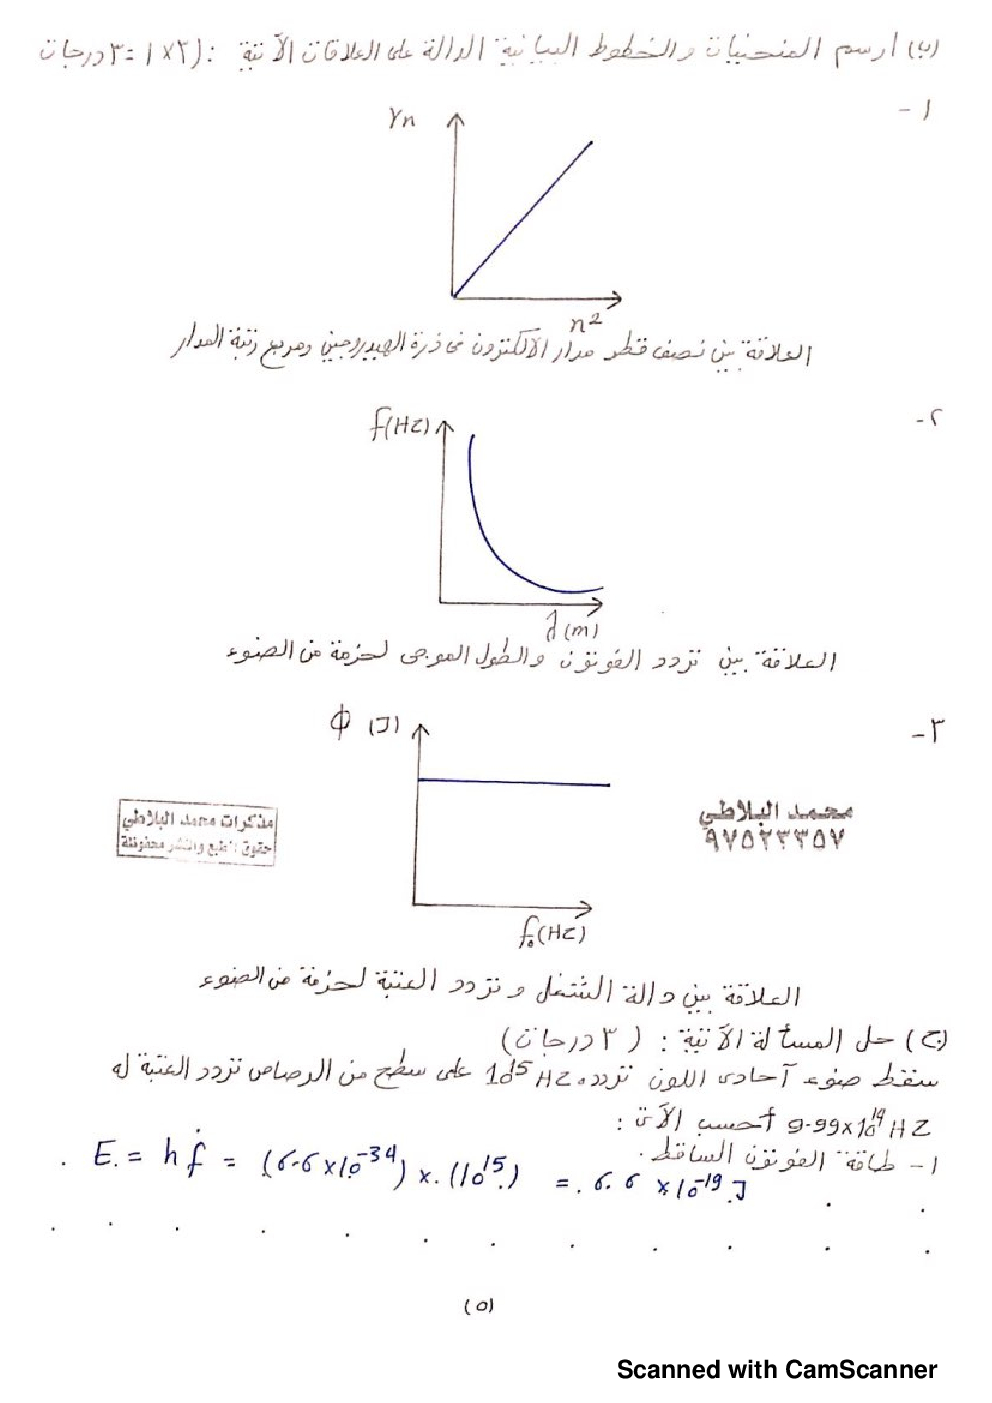 (ب) ارسم المنحنيات والخطوط البيانية الدالة على العلاقات الآتية : (٣×١=٣درجات
١-
rn
n²
العلاقة بين نصف قطر مدار الالكترون في ذرة الهيدروجيني ومربع رتبة المدار
٢-
f(Hz)
λ(m)
العلاقة بين تردد الفوتون والطول الموجى لحزمة من الضوء
٣-
Φ (J)
محمد البلاطي
٩٧٥٢٣٣٥٧
مذكرات محمد البلاطي
حقوق الطبع والنشر محفوظة
f₀(Hz)
العلاقة بين دالة الشغل وتردد العتبة لحزمة من الضوء
(ج) حل المسألة الآتية : (٣ درجات)
سقط ضوء آحادى اللون تردده 10¹⁵ Hz على سطح من الرصاص تردد العتبة له
9.99x10¹⁴ HZ أحسب الآتى :
١- طاقة الفوتون الساقط .
E = h f = (6.6 x10⁻³⁴) x (10¹⁵) = 6.6 x10⁻¹⁹ J
(٥)
Scanned with CamScanner